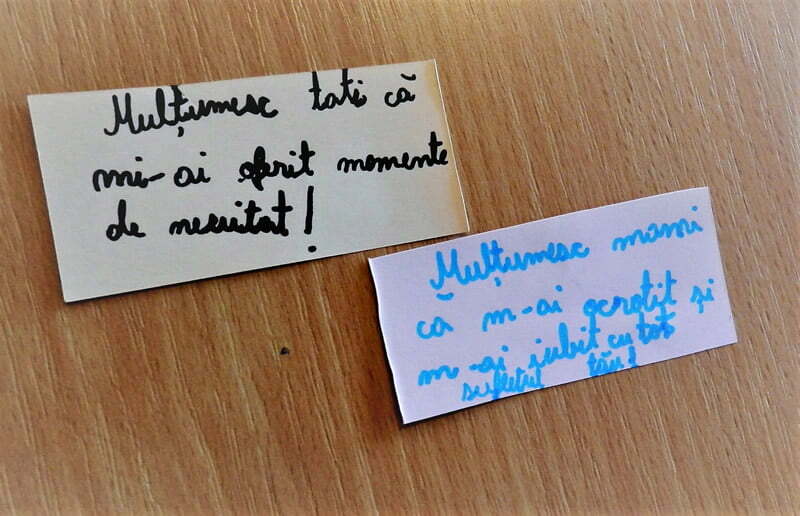 Mulțumesc tati că
mi-ai oferit momente
de neuitat!
Mulțumesc mami
că m-ai ocrotit și
m-ai iubit cu tot
sufletul tău!